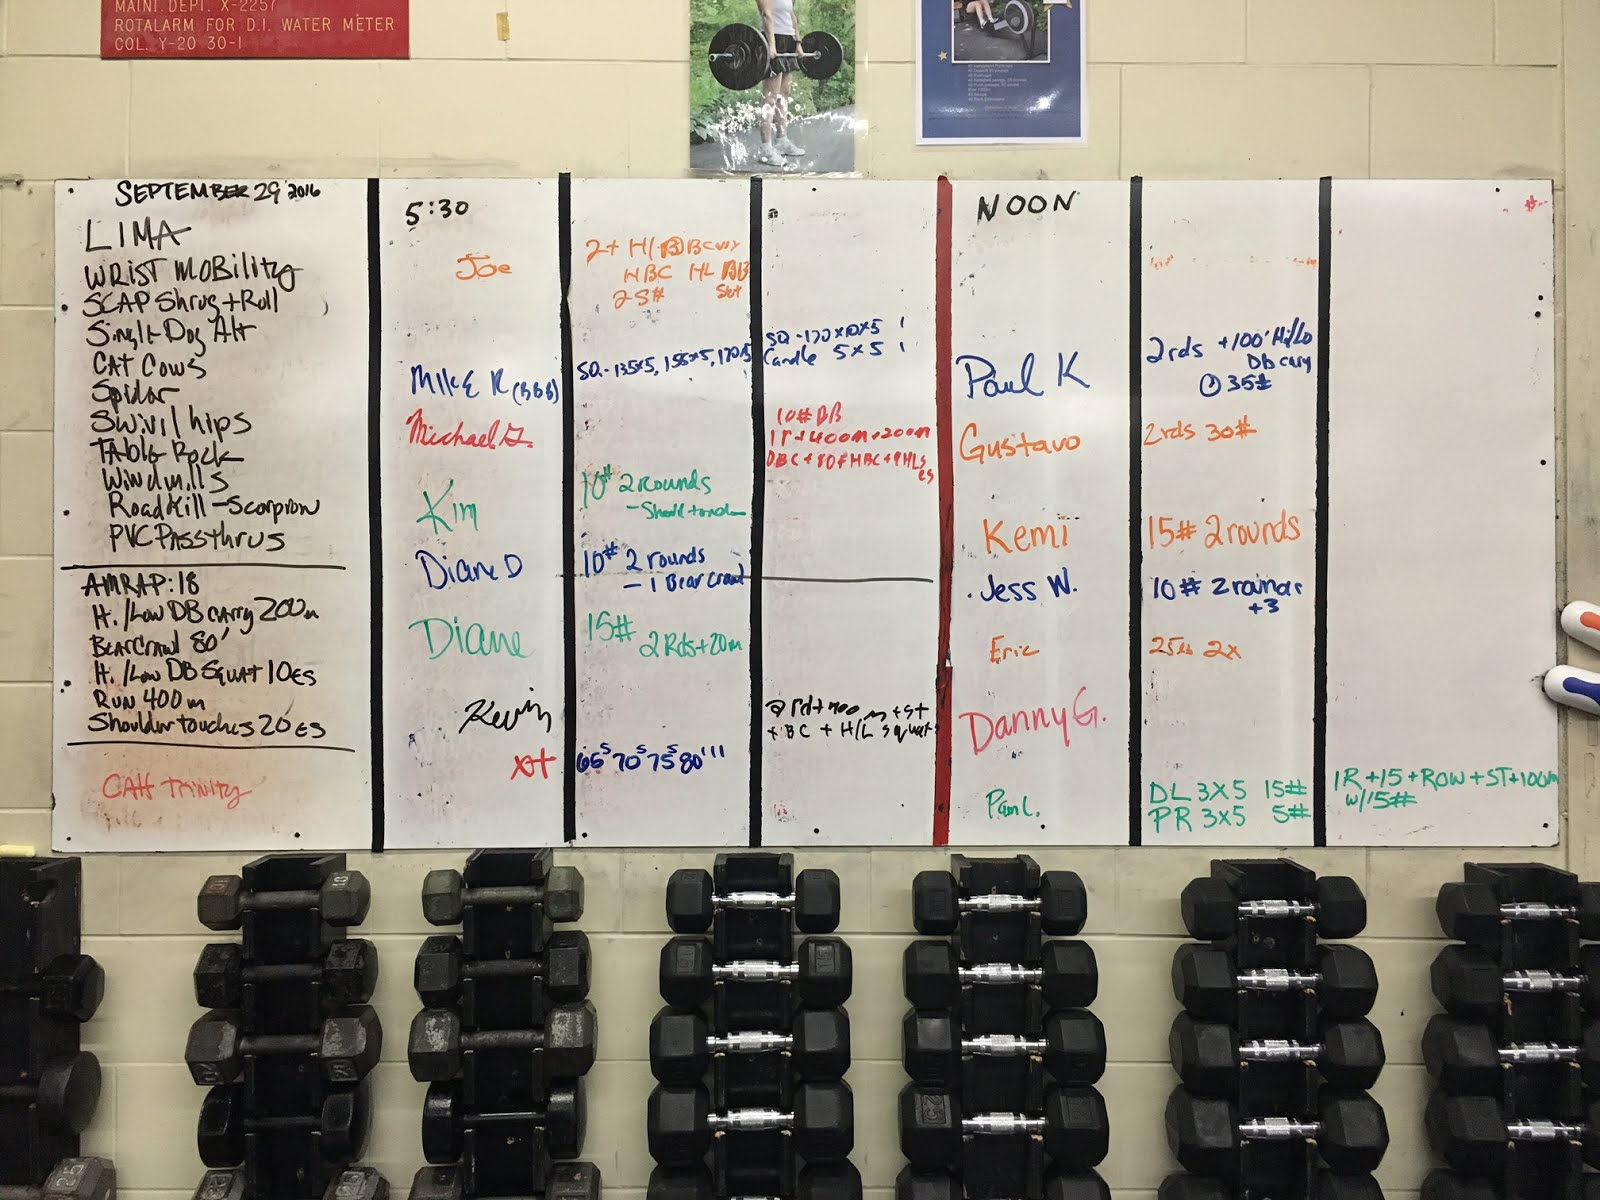 MAINT. DEPT. X-2257
ROTALARM FOR D.I. WATER METER
COL. Y-20 30-1
SEPTEMBER 29 2016
LIMA
WRIST MOBility
SCAP Shrug + Roll
Single Dog Alt
CAT COWS
Spidar
Swivil hips
TABle Rock
Windmills
RoadKill - Scorpion
PVC PASSthrus
AMRAP: 18
H./Low DB carry 200m
BearCrawl 80'
H./Low DB Squat 10es
Run 400m
Shoulder touches 20 es
Trinity
5:30
Joe
2+ H/
HBC HL
25#
Mike R (BBB)
SQ - 135x5, 155x5, 170x5
SQ - 170x10x5
Candle 5x5
Michael G.
10# DB
1r + 400m + 200m
Kim
10# 2 rounds
Diane D
10# 2 rounds
- 1 Bear crawl
Diane
15# 2 Rds + 20m
Kevin
+ BC + H/L squats
65⁵ 70⁵ 75⁵ 80'''
NOON
Paul K
2 rds +100' Hi/Lo
DB carry
35#
Gustavo
2 rds 30#
Kemi
15# 2 rounds
Jess W.
10# 2
+3
Eric
25lb 2x
Danny G.
Pam L.
DL 3X5 15#
PR 3X5 5#
1R + 15 + ROW + ST + 100m
w/15#